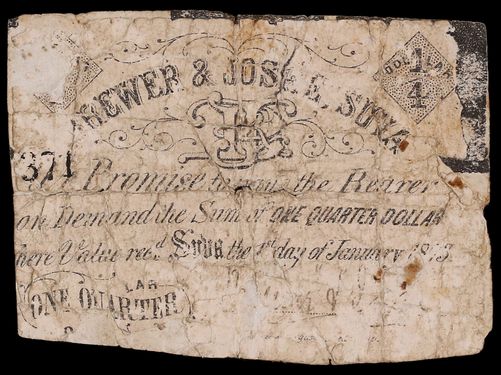 BREWER & JOSKE, SUVA
DOLLAR
1/4
1/4
371
I Promise to pay the Bearer
on Demand the Sum of ONE QUARTER DOLLAR
here Value recd Suva the 1st day of January 1873
LAR
ONE QUARTER